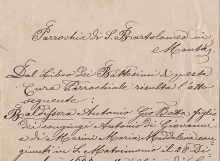 Parrochia di S. Bartolomeo in
Montà
Dal Libro dei Battesimi di questa
Cura Parrochiale risulta l'atto
seguente:
Antonio Gio Batta, figlio
dei coniugi Antonio di
e di Maria Maddalena con
giunti in S. Matrimonio il 28